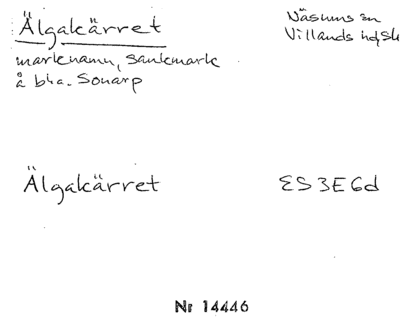 Älgakärret
Näsums sn
Villands hd, Sk
marknamn, sankmark
å bha. Sonarp
Älgakärret
ES 3E6d
Nr 14446